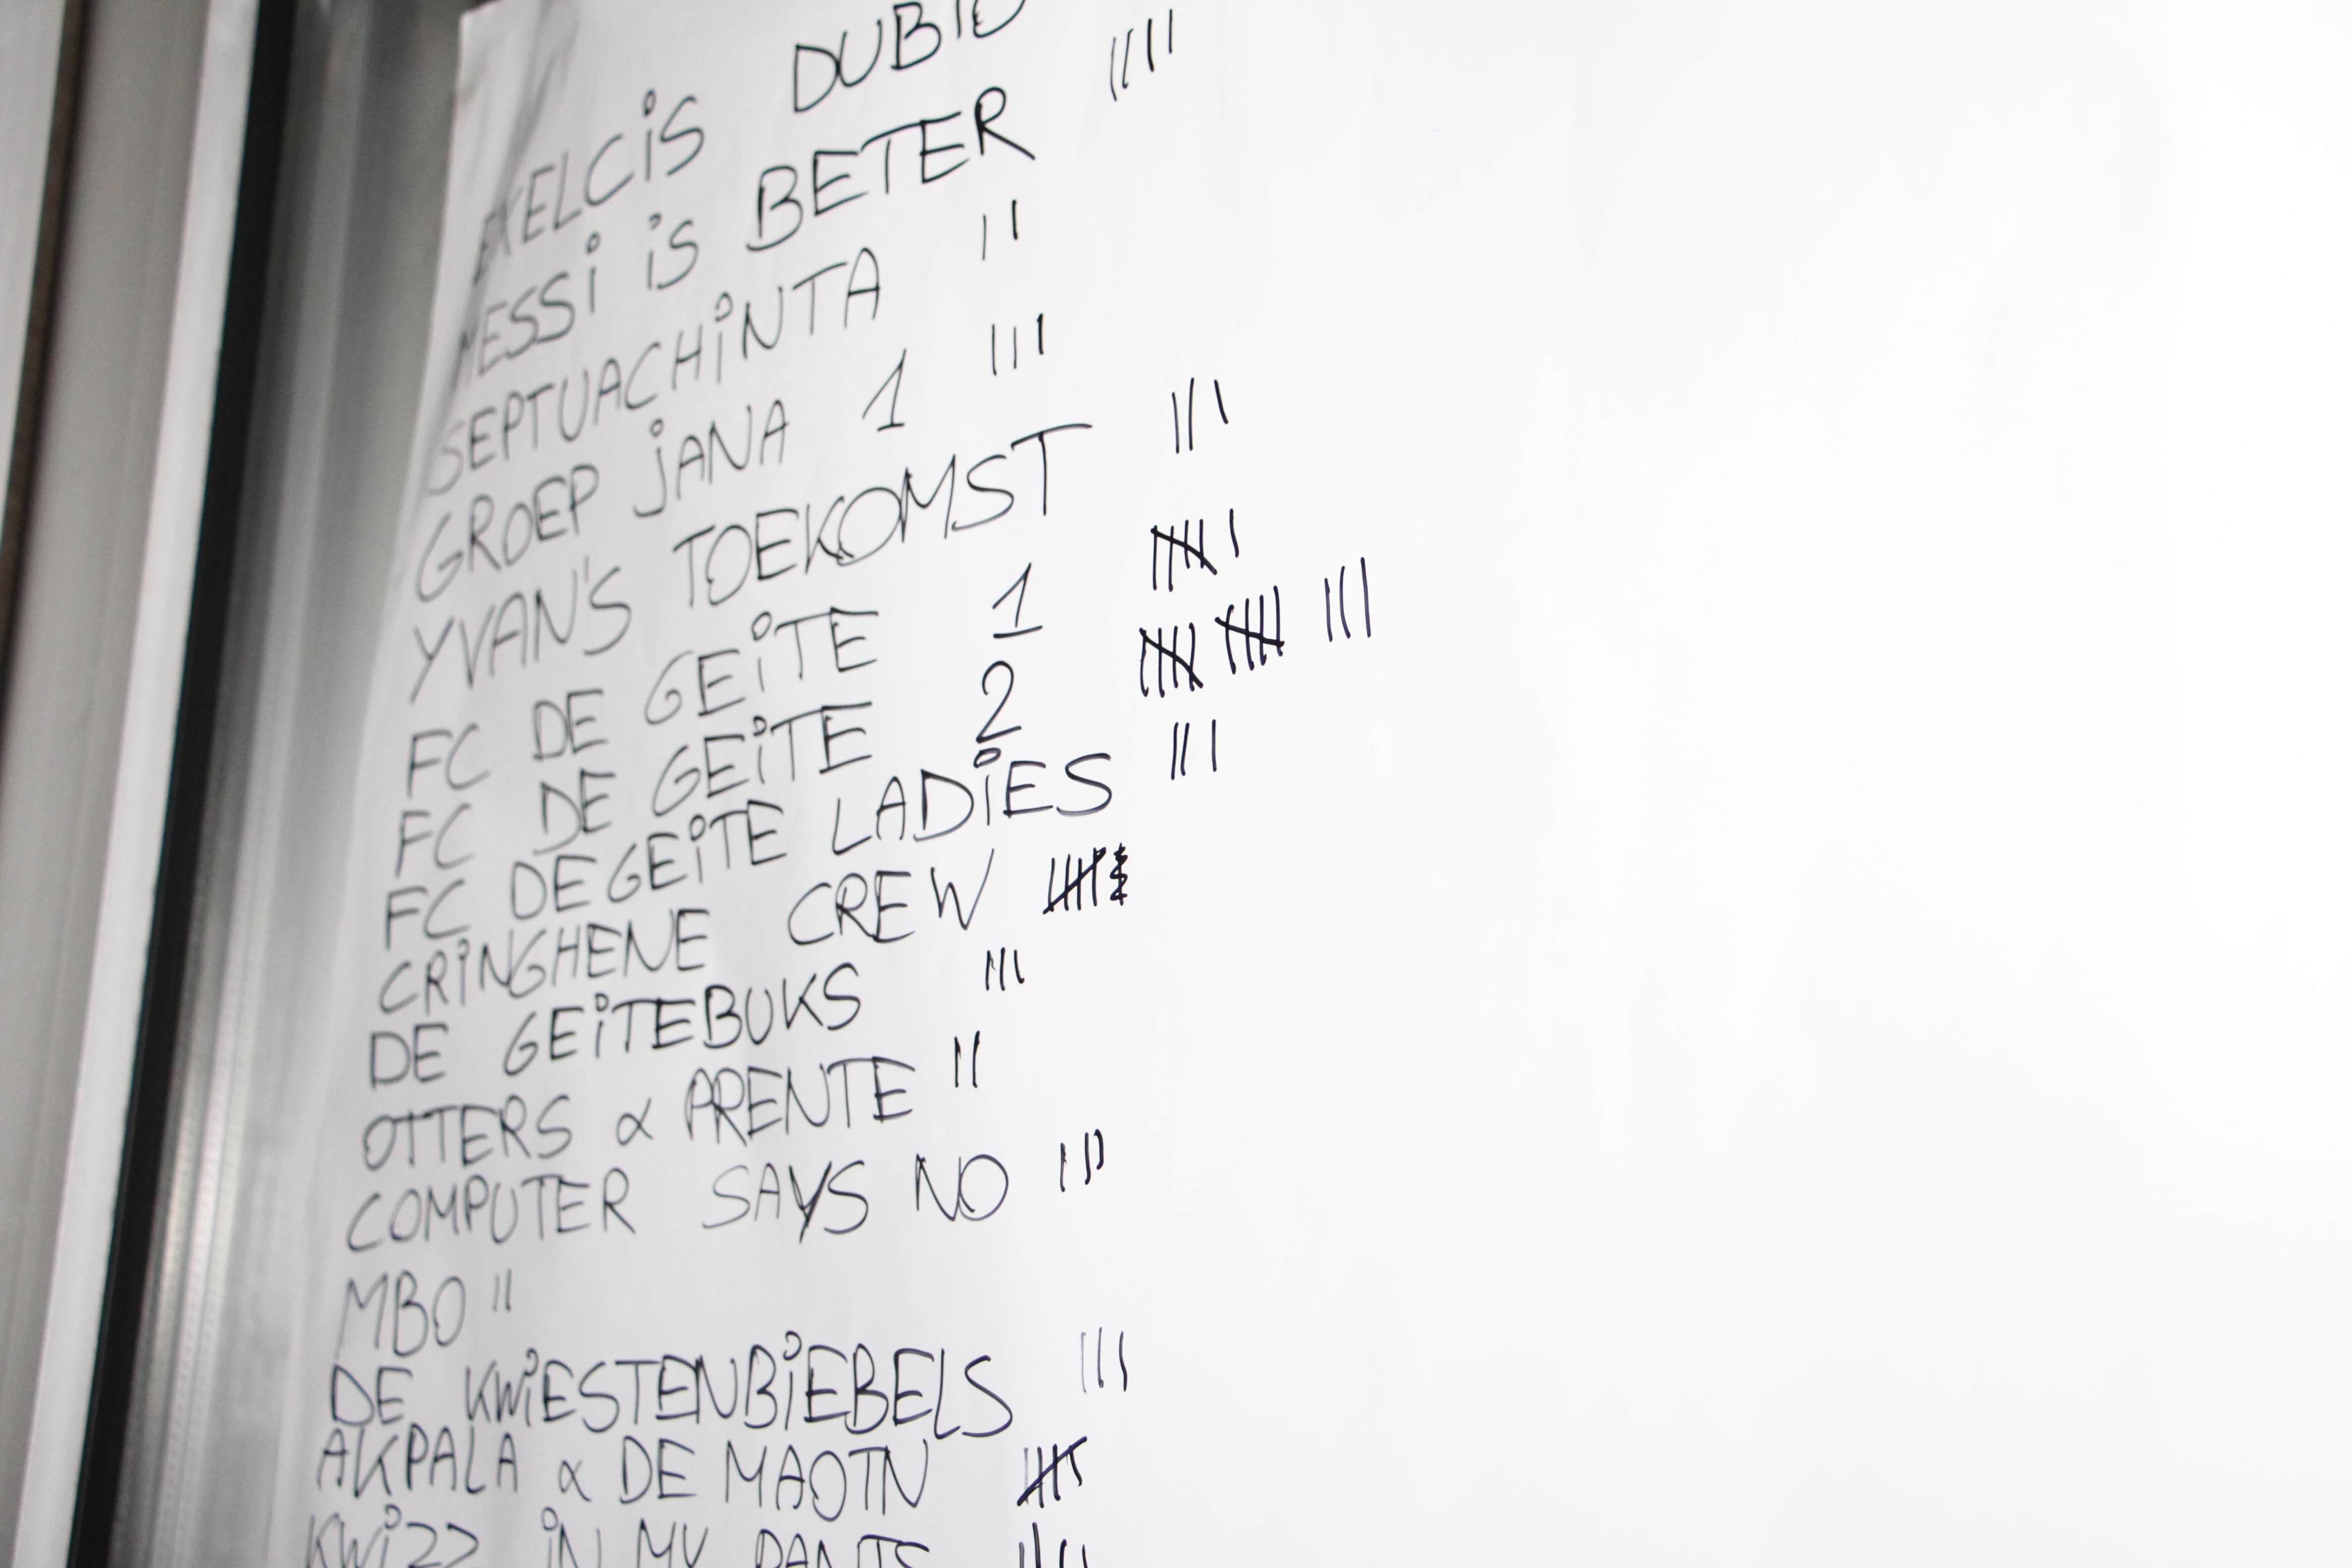 EXELCIS DUBIO
MESSI IS BETER ||||
SEPTUACHINTA ||
GROEP JANA 1 |||
YVAN'S TOEKOMST |||
FC DE GEITE 1 |||| |
FC DE GEITE 2 |||| |||| |||
FC DE GEITE LADIES |||
CRINGHENE CREW ||||
DE GEITEBUKS |||
OTTERS & PRENTE ||
COMPUTER SAYS NO |||
MBO ||
DE KWIESTENBIEBELS |||
AKPALA & DE MAOTN ||||
KWIZZ IN MY PANTS